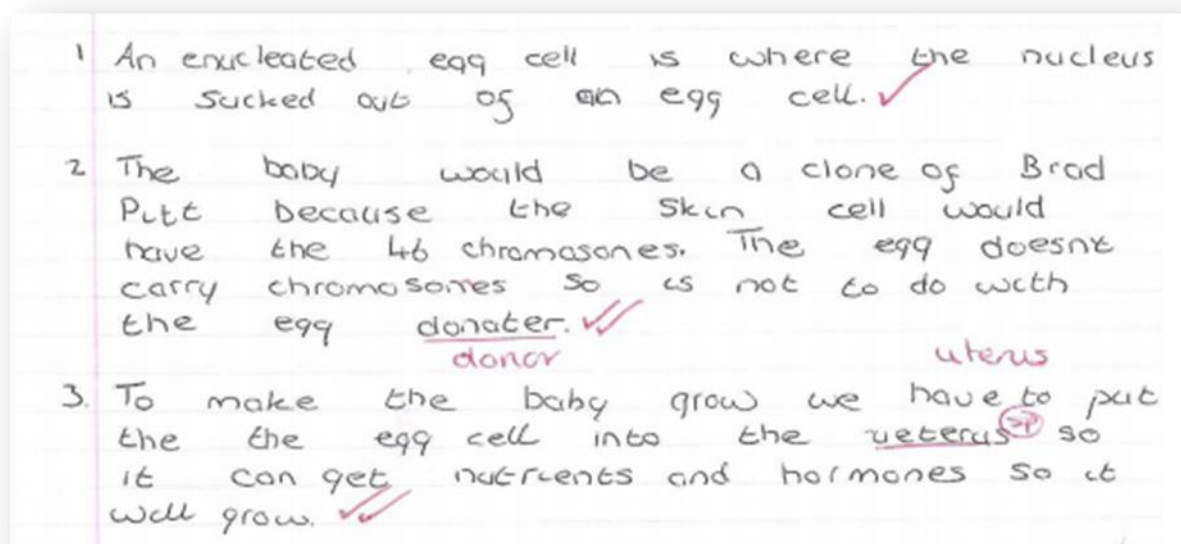 1 An enucleated egg cell is where the nucleus
is sucked out of an egg cell. ✓
2 The baby would be a clone of Brad
Pitt because the skin cell would
have the 46 chromosones. The egg doesnt
carry chromosomes so is not to do with
the egg donater. ✓✓
donor
uterus
3. To make the baby grow we have to put
the the egg cell into the ueterus sp so
it can get nutrients and hormones so it
will grow. ✓✓